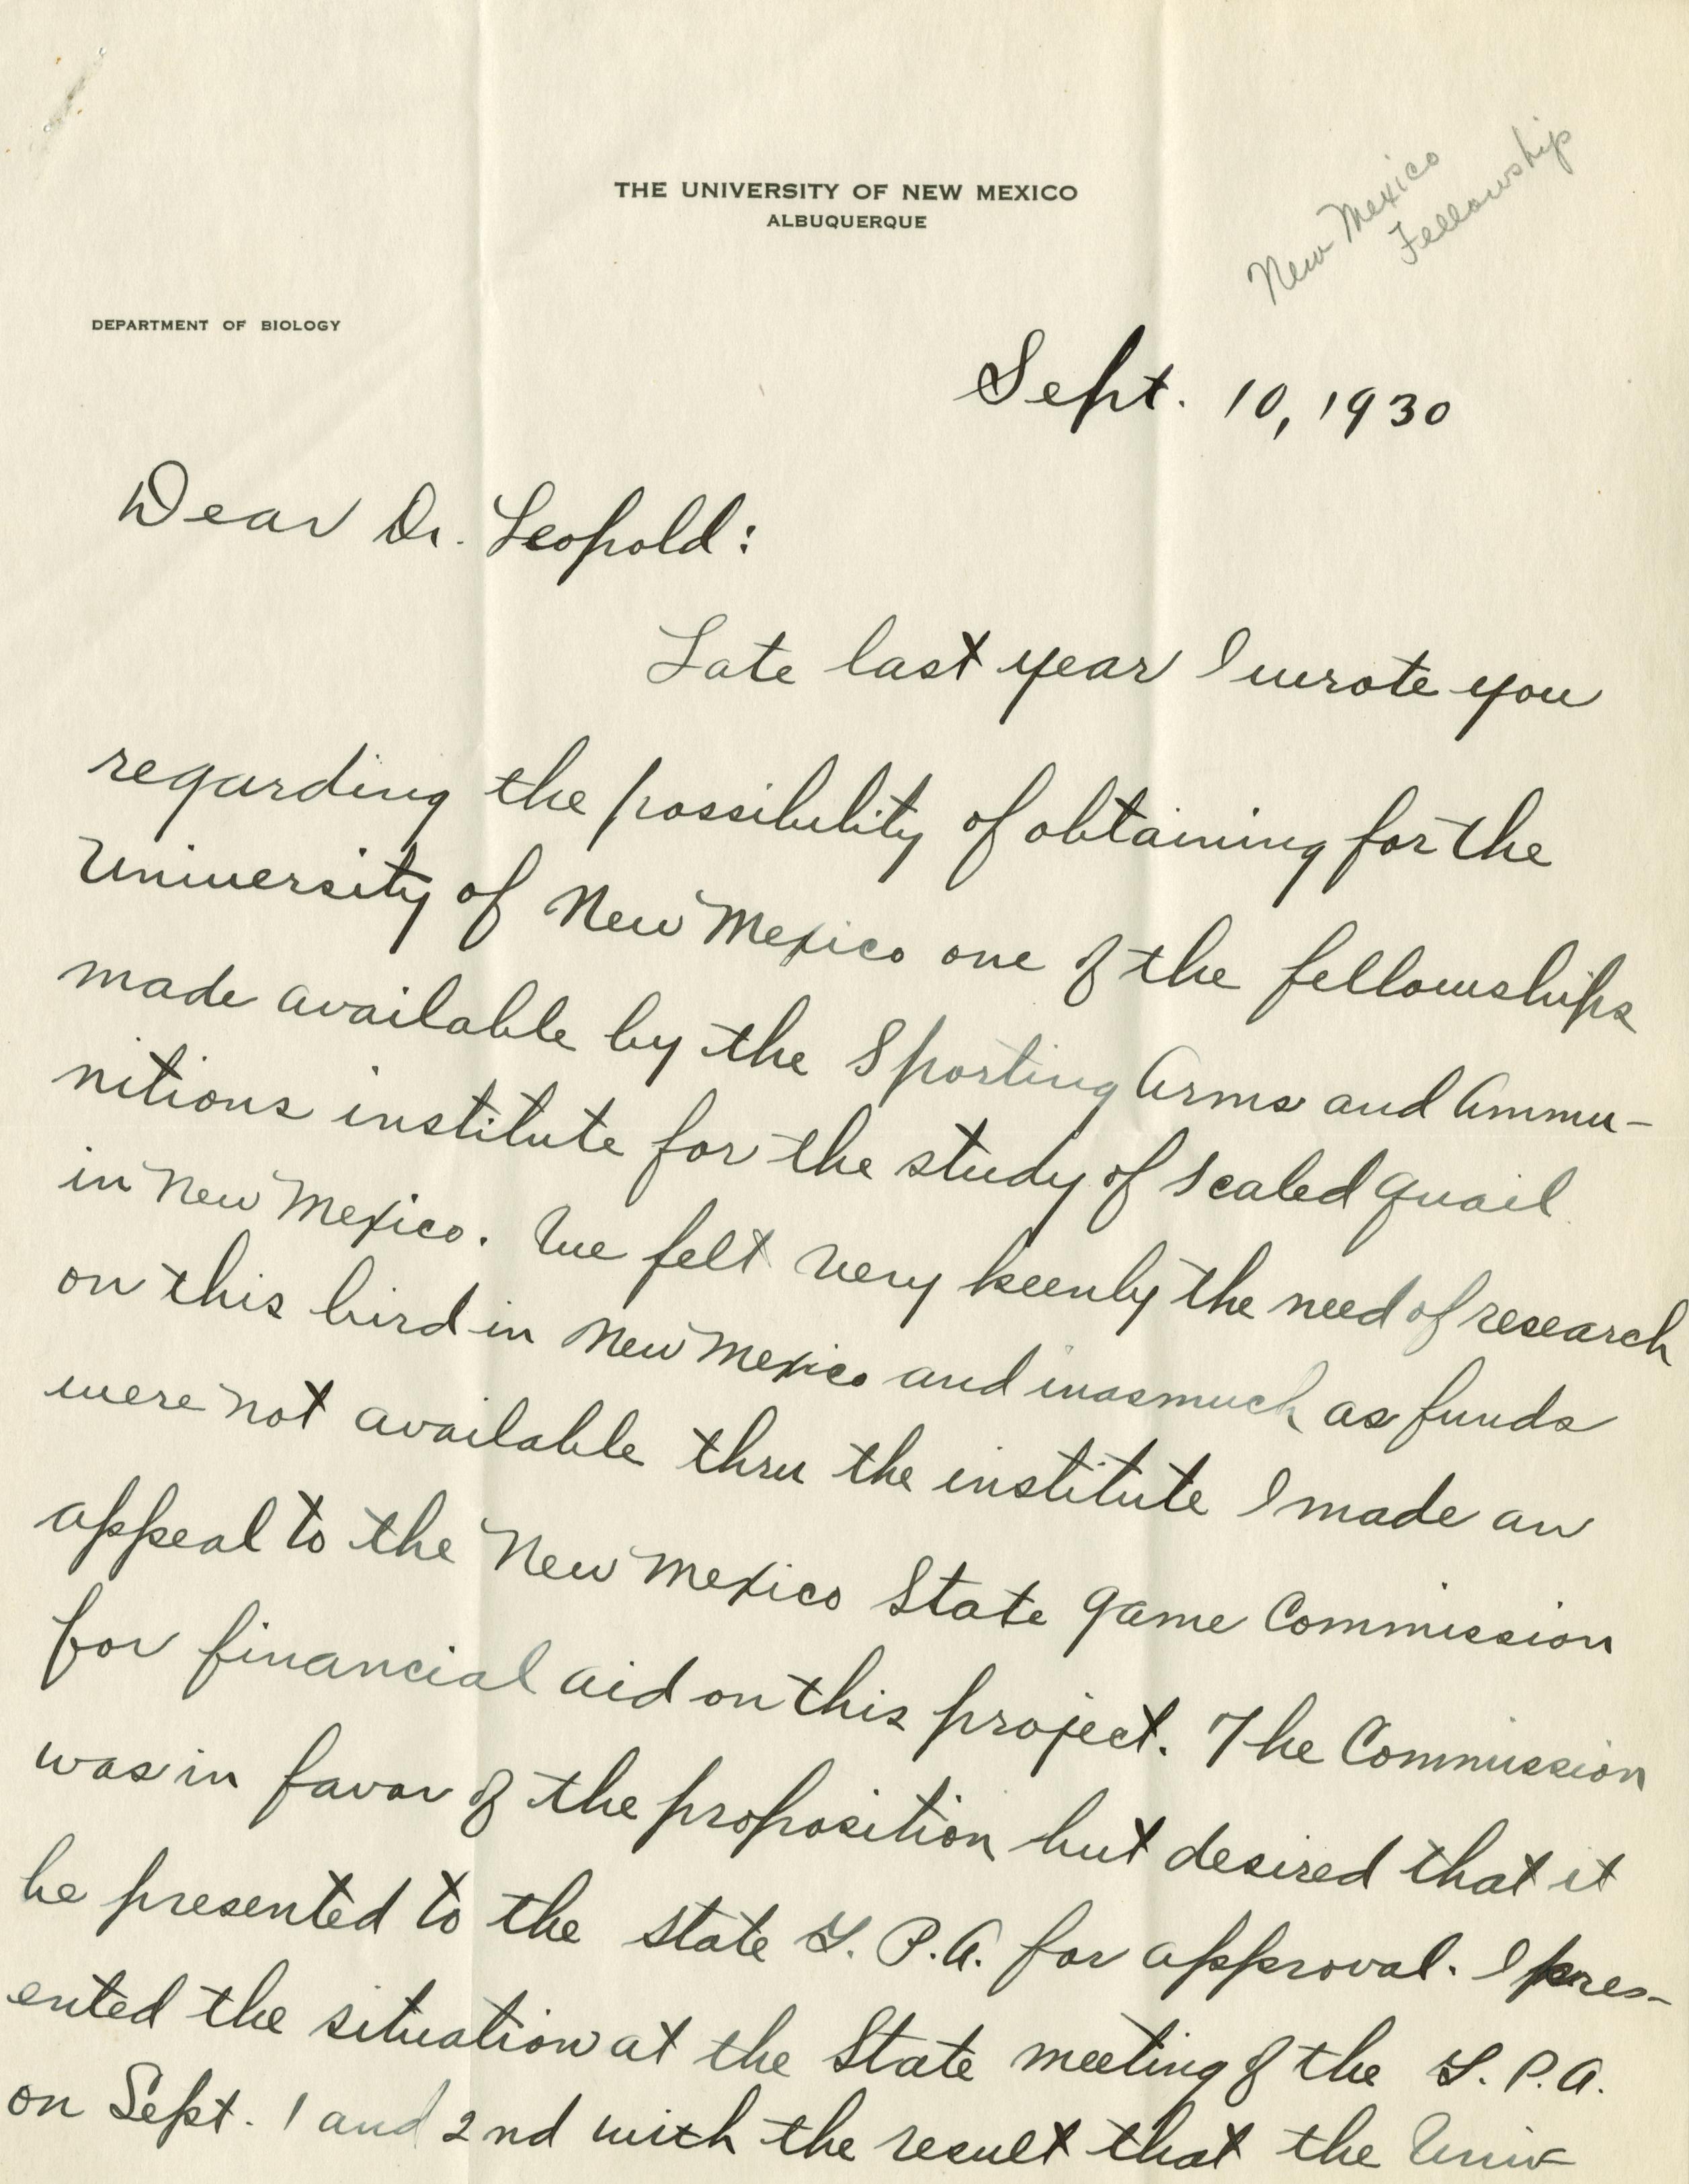 THE UNIVERSITY OF NEW MEXICO
ALBUQUERQUE
New Mexico
Fellowship
DEPARTMENT OF BIOLOGY
Sept. 10, 1930
Dear Dr. Leopold:
Late last year I wrote you
regarding the possibility of obtaining for the
University of New Mexico one of the fellowships
made available by the Sporting Arms and Ammu-
nitions institute for the study of scaled quail
in New Mexico. We felt very keenly the need of research
on this bird in New Mexico and inasmuch as funds
were not available thru the institute I made an
appeal to the New Mexico State Game Commission
for financial aid on this project. The Commission
was in favor of the proposition but desired that it
be presented to the state G.P.A. for approval. I pres-
ented the situation at the State meeting of the G.P.A.
on Sept. 1 and 2nd with the result that the Univ-